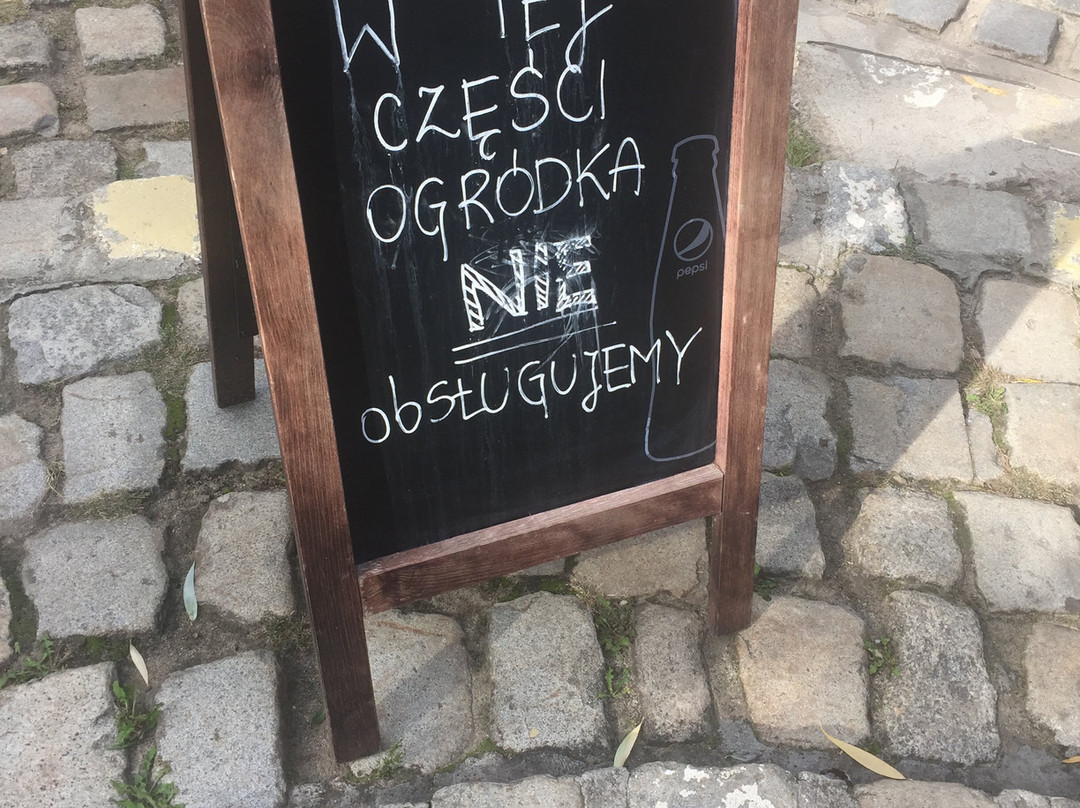 W TEJ
CZĘŚCI
OGRÓDKA
NIE
obsŁUGUJEMY
pepsi